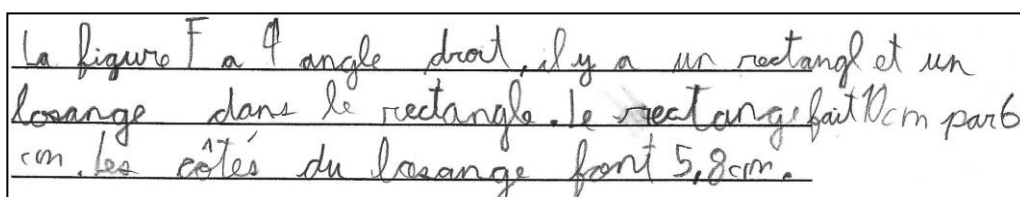 La figure F a 4 angle droit, il y a un rectangl et un
losange dans le rectangle. le rectange fait 10cm par 6
cm. Les côtés du losange font 5,8cm.